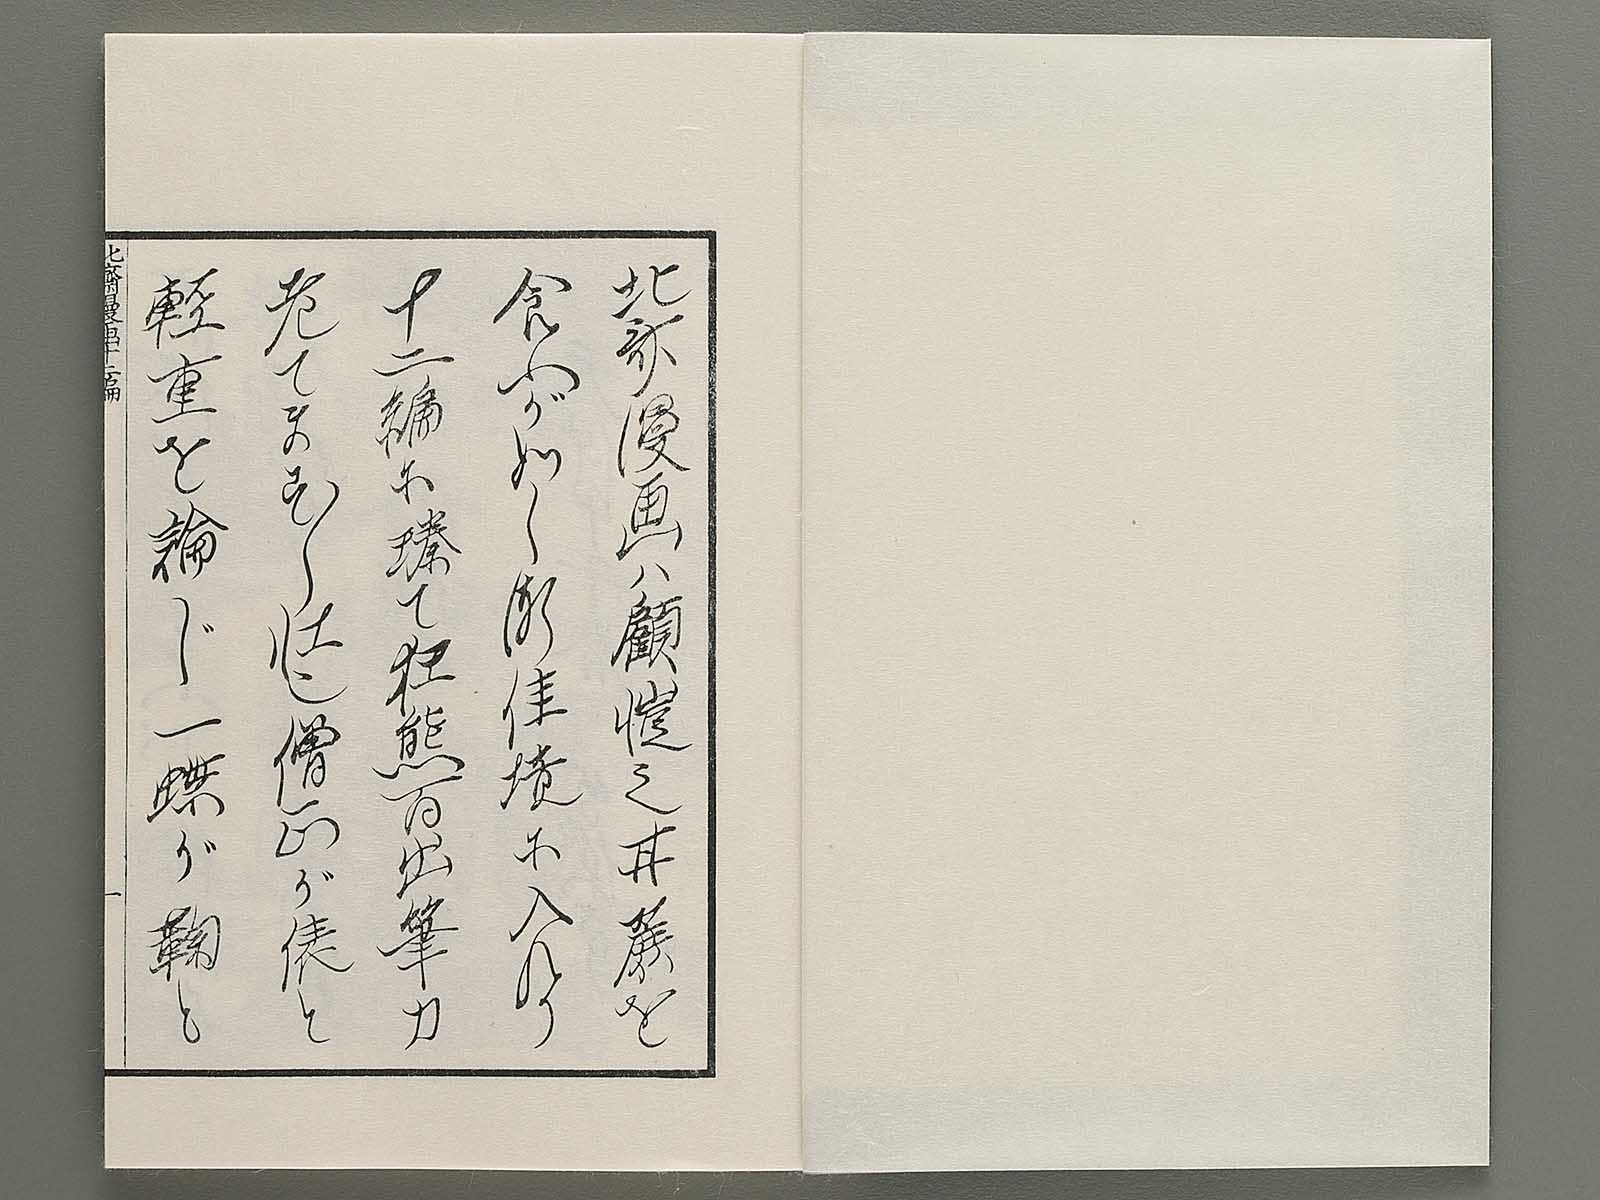 北斎漫画ハ顧愷之甘蔗を
食ふが如し漸佳境に入れり
十二編に臻て狂態百出筆力
老てます〳〵壮也僧正が俵と
軽重を論じ一蝶が鞠と
北齋漫画十二編
一